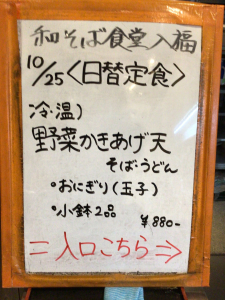 和そば食堂入福
10/25〈日替定食〉
冷・温)
野菜かきあげ天
そば・うどん
・おにぎり(玉子)
・小鉢2品
¥880-
=入口こちら⇒